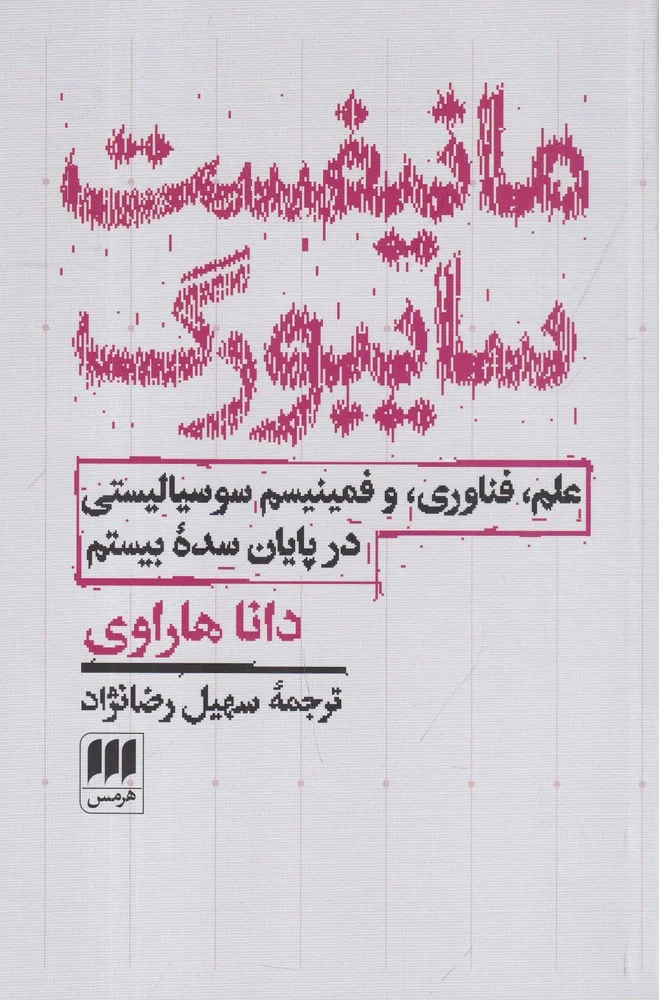 مانیفست
سایبورگ
علم، فناوری، و فمینیسم سوسیالیستی
در پایان سدهٔ بیستم
دانا هاراوی
ترجمهٔ سهیل رضانژاد
هرمس